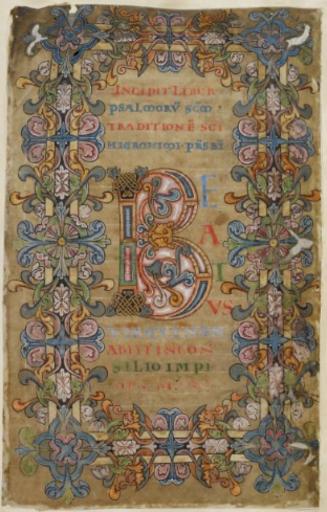 INCIPIT LIBER
PSALMORV̄ SCDM̄
TRADITIONĒ SCI
HIERONIMI PRSBI
BE
A
T
VS
ABIIT IN CON
SILIO IMPI